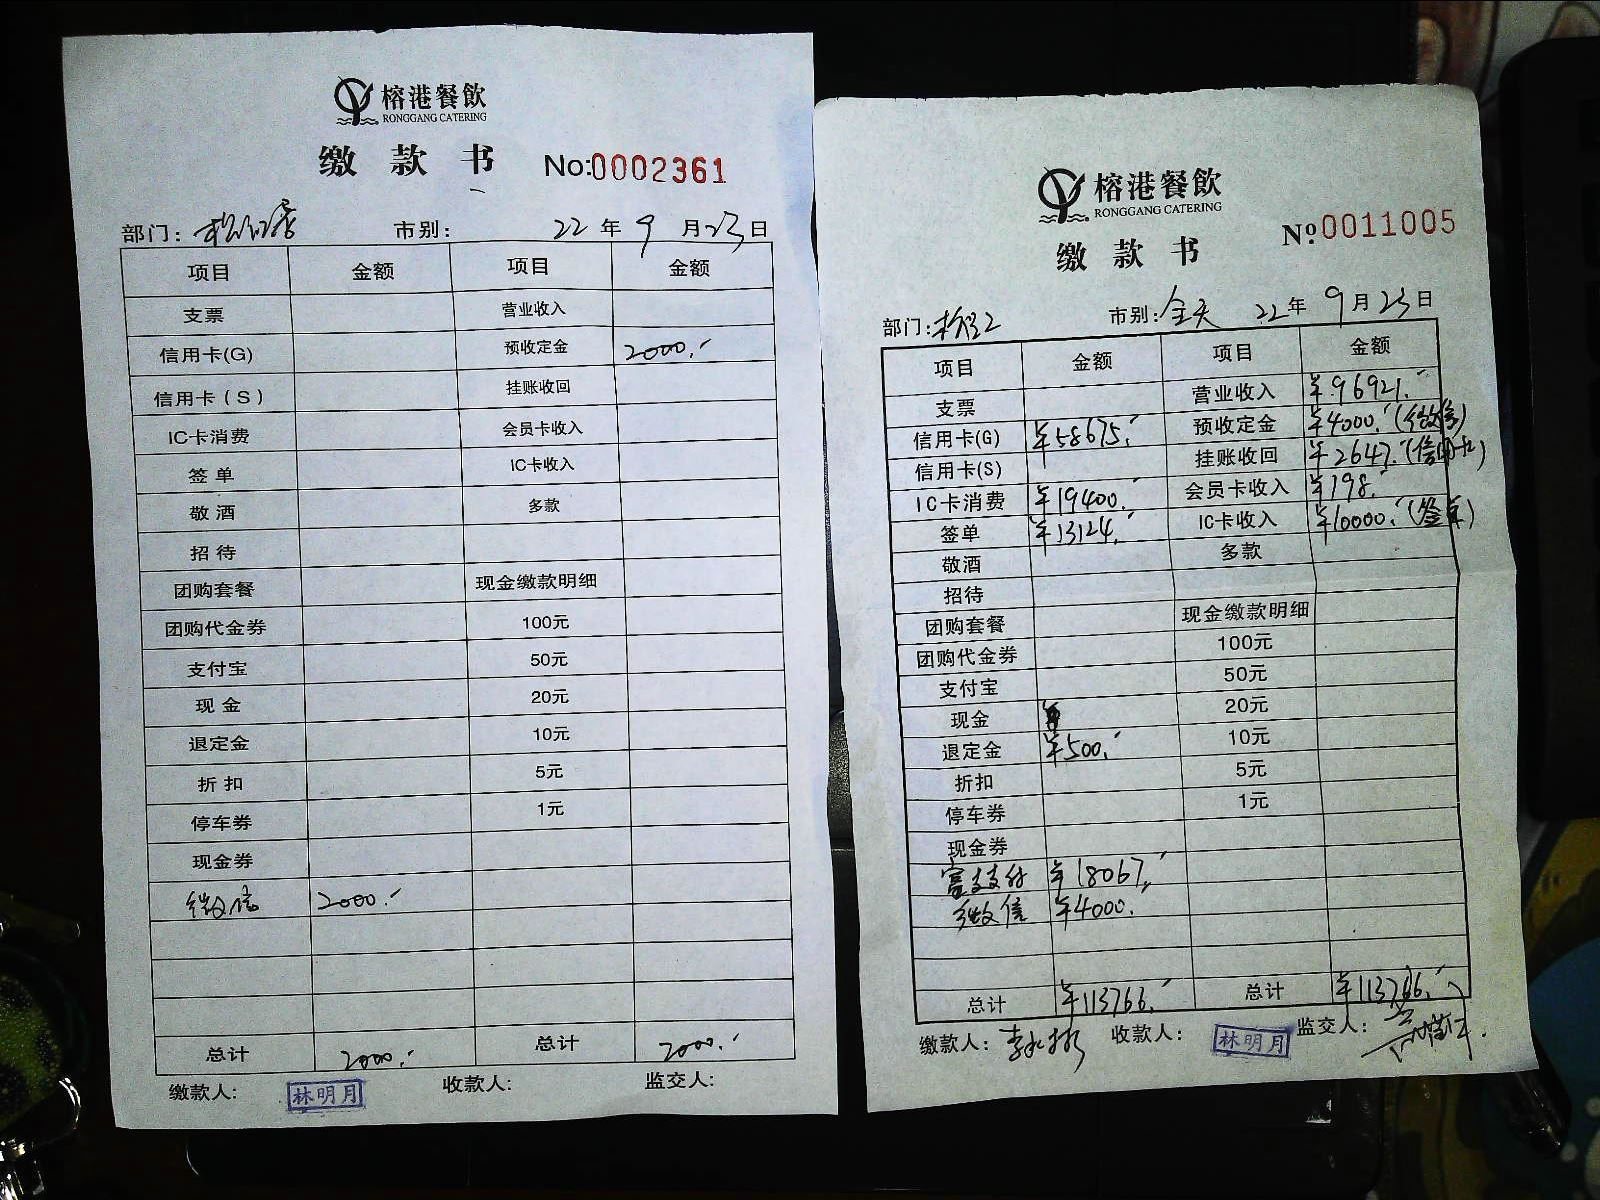 榕港餐飲
RONGGANG CATERING
缴款书 No:0002361
部门: 市别: 22年9月23日
项目 金额 项目 金额
支票 营业收入
信用卡(G) 预收定金 2000.-
信用卡(S) 挂账收回
IC卡消费 会员卡收入
签单 IC卡收入
敬酒 多款
招待
团购套餐 现金缴款明细
团购代金券 100元
支付宝 50元
现金 20元
退定金 10元
折扣 5元
停车券 1元
现金券
微信 2000.-
总计 2000.- 总计 2000.-
缴款人: 林明月 收款人: 监交人:
榕港餐飲
RONGGANG CATERING
缴款书 No:0011005
部门: 市别:全天 22年9月23日
项目 金额 项目 金额
支票 营业收入 ¥96921.-
信用卡(G) ¥58675.- 预收定金 ¥4000.-(微信)
信用卡(S) 挂账收回 ¥2647.-(信用卡)
IC卡消费 ¥19400.- 会员卡收入 ¥198.-
签单 ¥13124.- IC卡收入 ¥10000.-(签单)
敬酒 多款
招待
团购套餐 现金缴款明细
团购代金券 100元
支付宝 50元
现金 20元
退定金 ¥500.- 10元
折扣 5元
停车券 1元
现金券
富友支付 ¥18067.-
微信 ¥4000.-
总计 ¥113766.- 总计 ¥113766.-
缴款人: 收款人: 林明月 监交人: